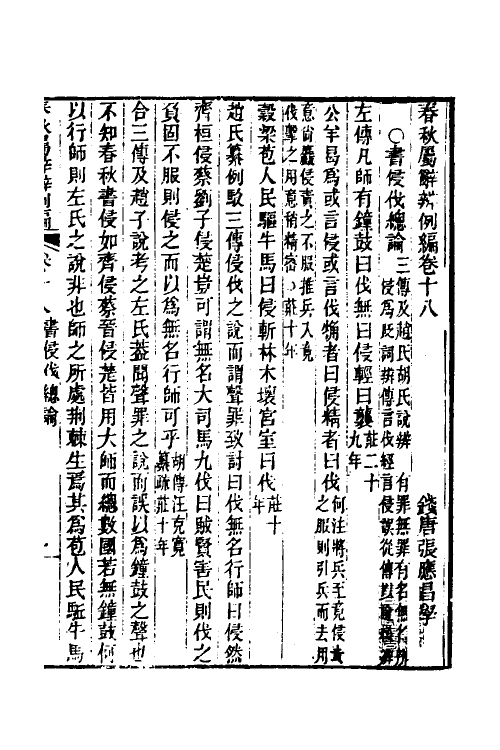 春秋屬辭辨例編卷十八
錢唐張應昌學
○書侵伐總論
三傳及趙氏胡氏說辨
有罪無罪有名無名辨
侵為貶詞辨傳言伐經言侵誤從傳
左傳凡師有鐘鼓曰伐無曰侵輕曰襲莊二十九年
公羊曷為或言侵或言伐觕者曰侵精者曰伐何注將兵至竟侵責之服則引兵而去用
意尚麤侵責之不服推兵入竟伐擊之用意稍精密○莊十年
穀梁苞人民驅牛馬曰侵斬林木壞宮室曰伐莊十年
趙氏纂例駁三傳侵伐之說而謂聲罪致討曰伐無名行師曰侵然
齊桓侵蔡劉子侵楚豈可謂無名大司馬九伐曰賊賢害民則伐之
負固不服則侵之而以為無名行師可乎胡傳汪克寬纂疏莊十年
合三傳及趙子說考之左氏蓋聞聲罪之說而誤以為鐘鼓之聲也
不知春秋書侵如齊侵蔡晉侵楚皆用大師而總數國若無鐘鼓何
以行師則左氏之說非也師之所處荊棘生焉其為苞人民驅牛馬
書侵伐總論